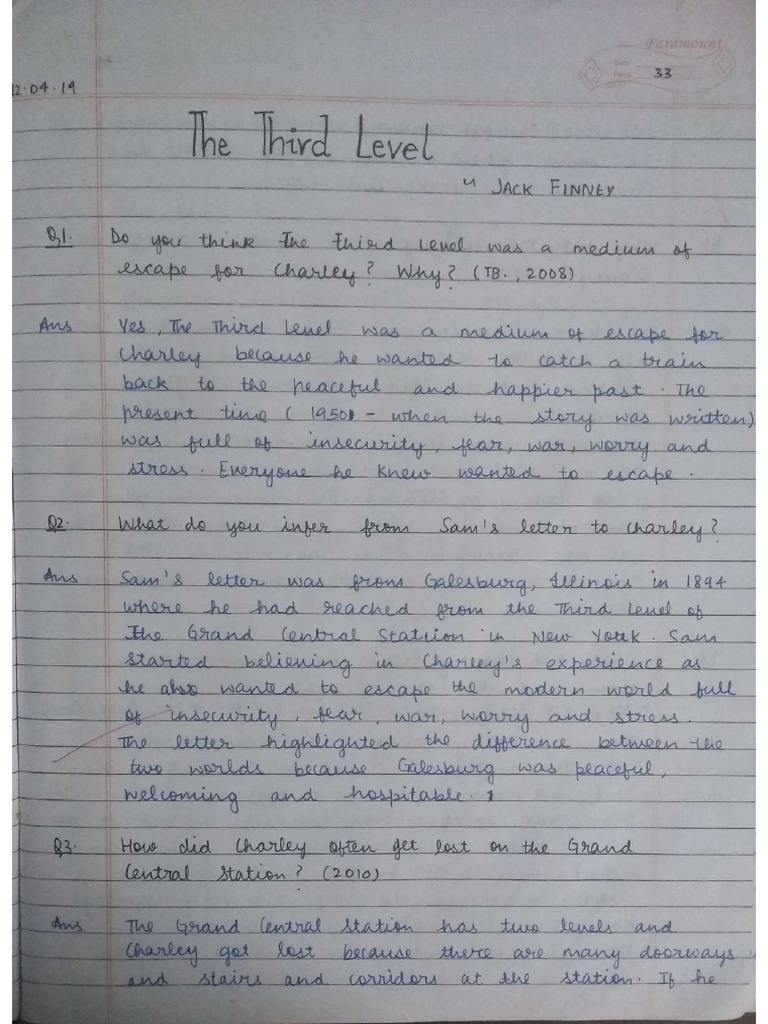 Paramount
33
12.04.19
The Third Level
" JACK FINNEY
Q1. Do you think The Third Level was a medium of
escape for Charley? Why? (TB., 2008)
Ans Yes, The Third Level was a medium of escape for
Charley because he wanted to catch a train
back to the peaceful and happier past. The
present time (1950 - when the story was written)
was full of insecurity, fear, war, worry and
stress. Everyone he knew wanted to escape.
Q2. What do you infer from Sam's letter to Charley?
Ans Sam's letter was from Galesburg, Illinois in 1894
where he had reached from the Third Level of
The Grand Central Station in New York. Sam
started believing in Charley's experience as
he also wanted to escape the modern world full
of insecurity, fear, war, worry and stress.
The letter highlighted the difference between the
two worlds because Galesburg was peaceful,
welcoming and hospitable.
Q3. How did Charley often get lost on the Grand
Central Station? (2010)
Ans The Grand Central Station has two levels and
Charley got lost because there are many doorways
and stairs and corridors at the station. If he